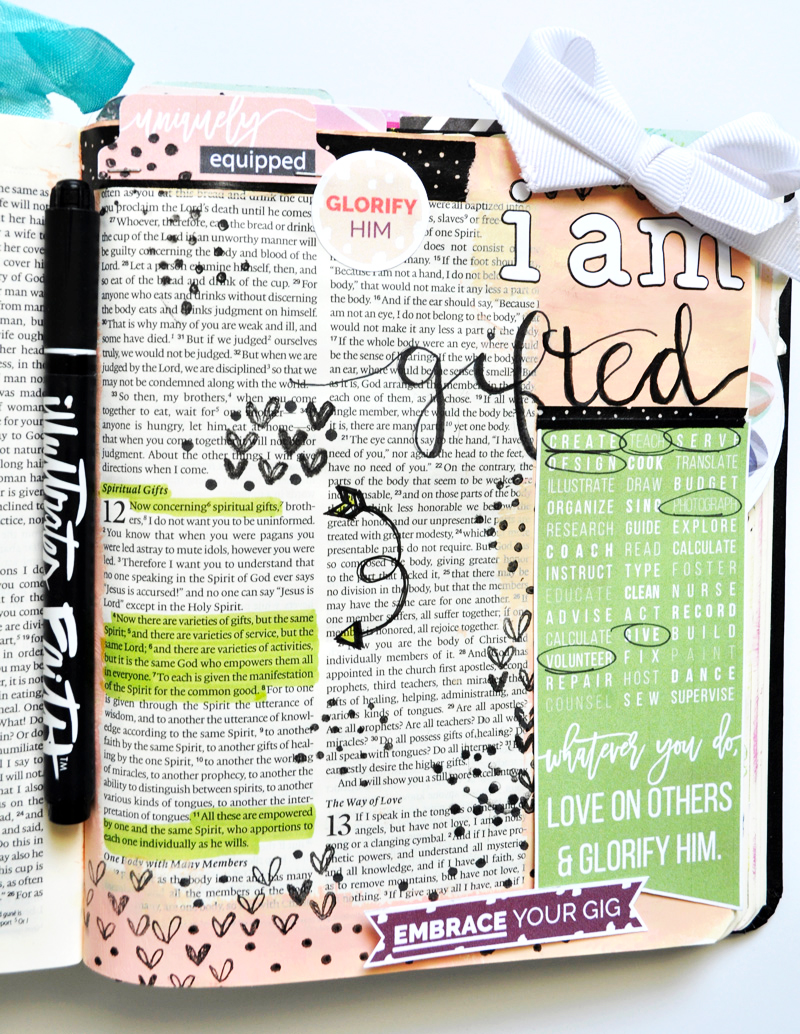 uniquely
equipped
GLORIFY
HIM
i am
gifted
illustrated Faith™
often as you eat this bread and drink the cup,
you proclaim the Lord's death until he comes.
27 Whoever, therefore, eats the bread or drinks
the cup of the Lord in an unworthy manner will
be guilty concerning the body and blood of the
Lord. 28 Let a person examine himself, then, and
so eat of the bread and drink of the cup. 29 For
anyone who eats and drinks without discerning
the body eats and drinks judgment on himself.
30 That is why many of you are weak and ill, and
some have died. 31 But if we judged ourselves
truly, we would not be judged. 32 But when we are
judged by the Lord, we are disciplined so that we
may not be condemned along with the world.
33 So then, my brothers, when you come
together to eat, wait for
anyone is hungry, let him eat at home
that when you come together it will not be for
judgment. About the other things I will give
directions when I come.
Spiritual Gifts
12 Now concerning spiritual gifts, broth-
ers, I do not want you to be uninformed.
2 You know that when you were pagans you
were led astray to mute idols, however you were
led. 3 Therefore I want you to understand that
no one speaking in the Spirit of God ever says
"Jesus is accursed!" and no one can say "Jesus is
Lord" except in the Holy Spirit.
4 Now there are varieties of gifts, but the same
Spirit; 5 and there are varieties of service, but the
same Lord; 6 and there are varieties of activities,
but it is the same God who empowers them all
in everyone. 7 To each is given the manifestation
of the Spirit for the common good. 8 For to one
is given through the Spirit the utterance of
wisdom, and to another the utterance of knowl-
edge according to the same Spirit, 9 to another
faith by the same Spirit, to another gifts of heal-
ing by the one Spirit, 10 to another the working
of miracles, to another prophecy, to another the
ability to distinguish between spirits, to another
various kinds of tongues, to another the inter-
pretation of tongues. 11 All these are empowered
by one and the same Spirit, who apportions to
each one individually as he wills.
One Body with Many Members
as the body is one and has many
all the members of the
were all baptized into
slaves or free
of one Spirit.
does not consist
many. 15 If the foot should
"Because I am not a hand, I do not belong
body," that would not make it any less a part of
the body. 16 And if the ear should say, "Because
I am not an eye, I do not belong to the body," that
would not make it any less a part of the body.
17 If the whole body were an eye, where would
be the sense of hearing? If the whole body were
an ear, where would be the sense of smell? But
as it is, God arranged the members in the body,
each one of them, as he chose. 19 If all were
single member, where would the body be?
it is, there are many parts, yet one body.
21 The eye cannot say to the hand, "I have no
need of you," nor again the head to the feet,
have no need of you." 22 On the contrary, the
parts of the body that seem to be weaker
indispensable, 23 and on those parts of the body
think less honorable we
greater honor, and our unpresentable
treated with greater modesty, 24 which
presentable parts do not require. But God
so composed the body, giving greater
lacked it, 25 that there may
no division in the body, but that the members
may have the same care for one another.
one member suffers, all suffer together; if one
member is honored, all rejoice together.
you are the body of Christ
individually members of it. 28 And
appointed in the church first apostles, second
prophets, third teachers, then miracles,
gifts of healing, helping, administrating, and
various kinds of tongues. 29 Are all apostles?
Are all prophets? Are all teachers? Do all work
miracles? 30 Do all possess gifts of healing? Do
all speak with tongues? Do all interpret?
earnestly desire the higher gifts.
And I will show you a still more excellent way.
The Way of Love
13 If I speak in the tongues of men and
angels, but have not love, I am a noisy
gong or a clanging cymbal. 2 And if I have pro-
phetic powers, and understand all mysteries
and all knowledge, and if I have all faith, so
as to remove mountains, but have not love, I
nothing. 3 If I give away all I have, and
CREATE TEACH SERVE
DESIGN COOK TRANSLATE
ILLUSTRATE DRAW BUDGET
ORGANIZE SING PHOTOGRAPH
RESEARCH GUIDE EXPLORE
COACH READ CALCULATE
INSTRUCT TYPE FOSTER
EDUCATE CLEAN NURSE
ADVISE ACT RECORD
CALCULATE GIVE BUILD
VOLUNTEER FIX PAINT
REPAIR HOST DANCE
COUNSEL SEW SUPERVISE
whatever you do,
LOVE ON OTHERS
& GLORIFY HIM.
EMBRACE YOUR GIG